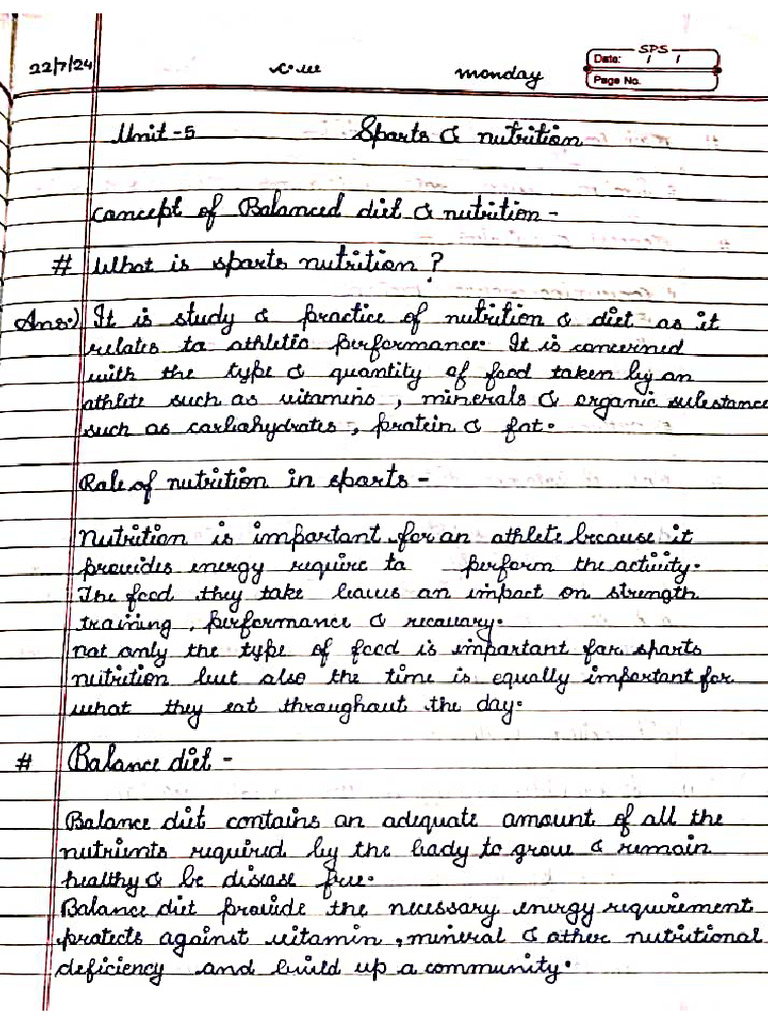 22/7/24 C.W Monday
SPS
Date: / /
Page No.
Unit-5 Sports & nutrition
Concept of Balanced diet & nutrition -
# What is sports nutrition?
Ans:) It is study & practice of nutrition & diet as it
relates to athletic performance. It is concerned
with the type & quantity of food taken by an
athlete such as vitamins, minerals & organic substance
such as carbohydrates, protein & fat.
Role of nutrition in sports -
Nutrition is important for an athlete because it
provides energy require to perform the activity.
The food they take leaves an impact on strength
training, performance & recovery.
not only the type of food is important for sports
nutrition but also the time is equally important for
what they eat throughout the day.
# Balance diet -
Balance diet contains an adequate amount of all the
nutrients required by the body to grow & remain
healthy & be disease free.
Balance diet provide the necessary energy requirement
protects against vitamin, mineral & other nutritional
deficiency and build up a community.